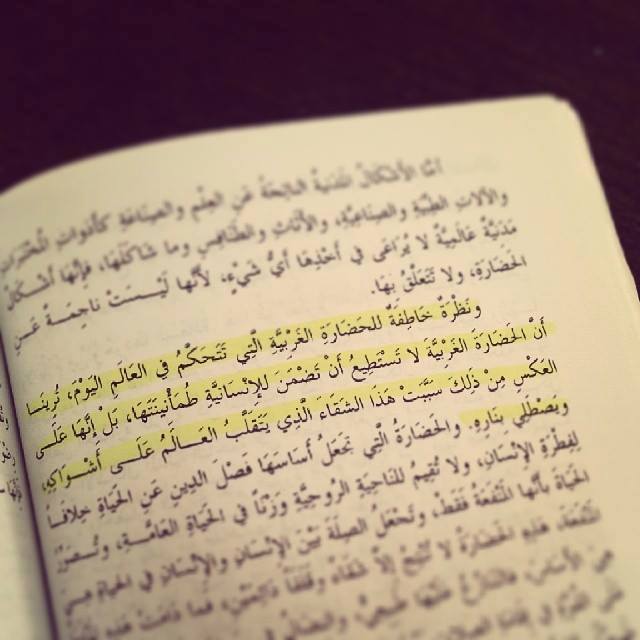 أمّا الأَشْكَالُ المَدَنِيَّةُ النَّاتِجَةُ عَنِ العِلْمِ والصِنَاعَةِ كَأَدَوَاتِ المُخْتَبَرَاتِ
والآلاتِ الطِّبِّيَّةِ والصِناعِيَّةِ، والأَثَاثِ والطَّنَافِسِ وما شَاكَلَهَا، فَإِنَّهَا أَشْكَالٌ
مَدَنِيَّةٌ عَالَمِيَّةٌ لا يُرَاعَى فِي أَخْذِهَا أَيُّ شَيْءٍ، لأَنَّها لَيْسَتْ نَاجِمَةً عَنِ
الحَضَارَةِ، ولا تَتَعَلَّقُ بِهَا.
ونَظْرَةٌ خَاطِفَةٌ لِلحَضَارَةِ الغَرْبِيَّةِ الَّتِي تَتَحَكَّمُ فِي العَالَمِ اليَوْمَ، تُرِينَا
أَنَّ الحَضَارَةَ الغَرْبِيَّةَ لا تَسْتَطِيعُ أَنْ تَضْمَنَ لِلإِنْسَانِيَّةِ طُمَأْنِينَتَهَا، بَلْ إِنَّهَا عَلَى
العَكْسِ مِنْ ذَلِكَ سَبَّبَتْ هَذَا الشَّقَاءَ الَّذِي يَتَقَلَّبُ العَالَمُ عَلَى أَشْوَاكِهِ،
ويَصْطَلِي بِنَارِهِ. والحَضَارَةُ الَّتِي تَجْعَلُ أَسَاسَهَا فَصْلَ الدِينِ عَنِ الحَيَاةِ خِلافاً
لِفِطْرَةِ الإِنْسَانِ، ولا تُقِيمُ لِلنَاحِيَةِ الرُوحِيَّةِ وَزْنًا فِي الحَيَاةِ العَامَّةِ، وتُصَوِّرُ
الحَيَاةَ بِأَنَّها المَنْفَعَةُ فَقَطْ، وتَجْعَلُ الصِلَةَ بَيْنَ الإِنْسَانِ والإِنْسَانِ فِي الحَيَاةِ هِيَ
المَنْفَعَةَ، هَذِهِ الحَضَارَةُ لا تُنْتِجُ إِلاَّ شَقَاءً وقَلَقًا دَائِمَيْنِ، فَمَا دَامَتْ هَذِهِ